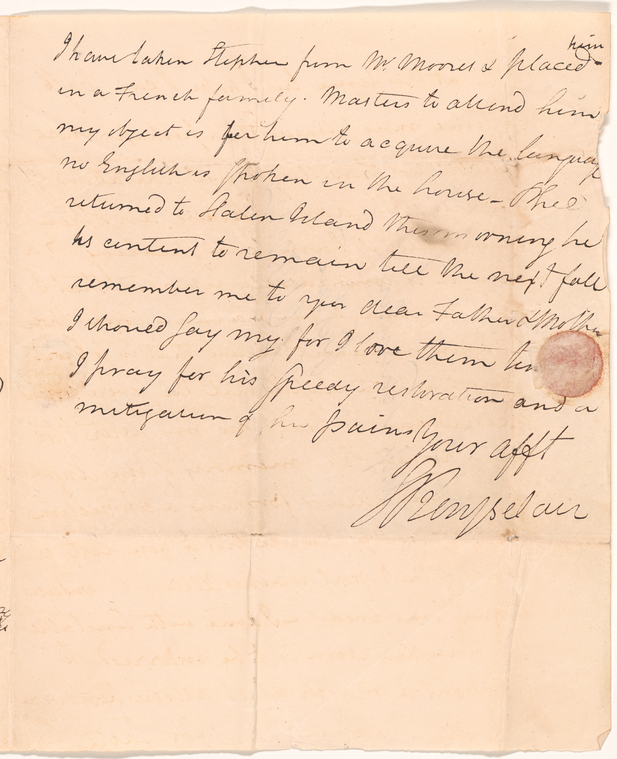 him
I have taken Stephen from Mr Moores & placed
in a French family. Masters to attend him
my object is for him to acquire the languag
no English is spoken in the house - Phil
returned to Staten Island this morning he
is content to remain till the next fall
remember me to your dear Father & Mother
I should say my for I love them
I pray for his speedy restoration and a
mitigation of his pains Your afft
SVRensselaer